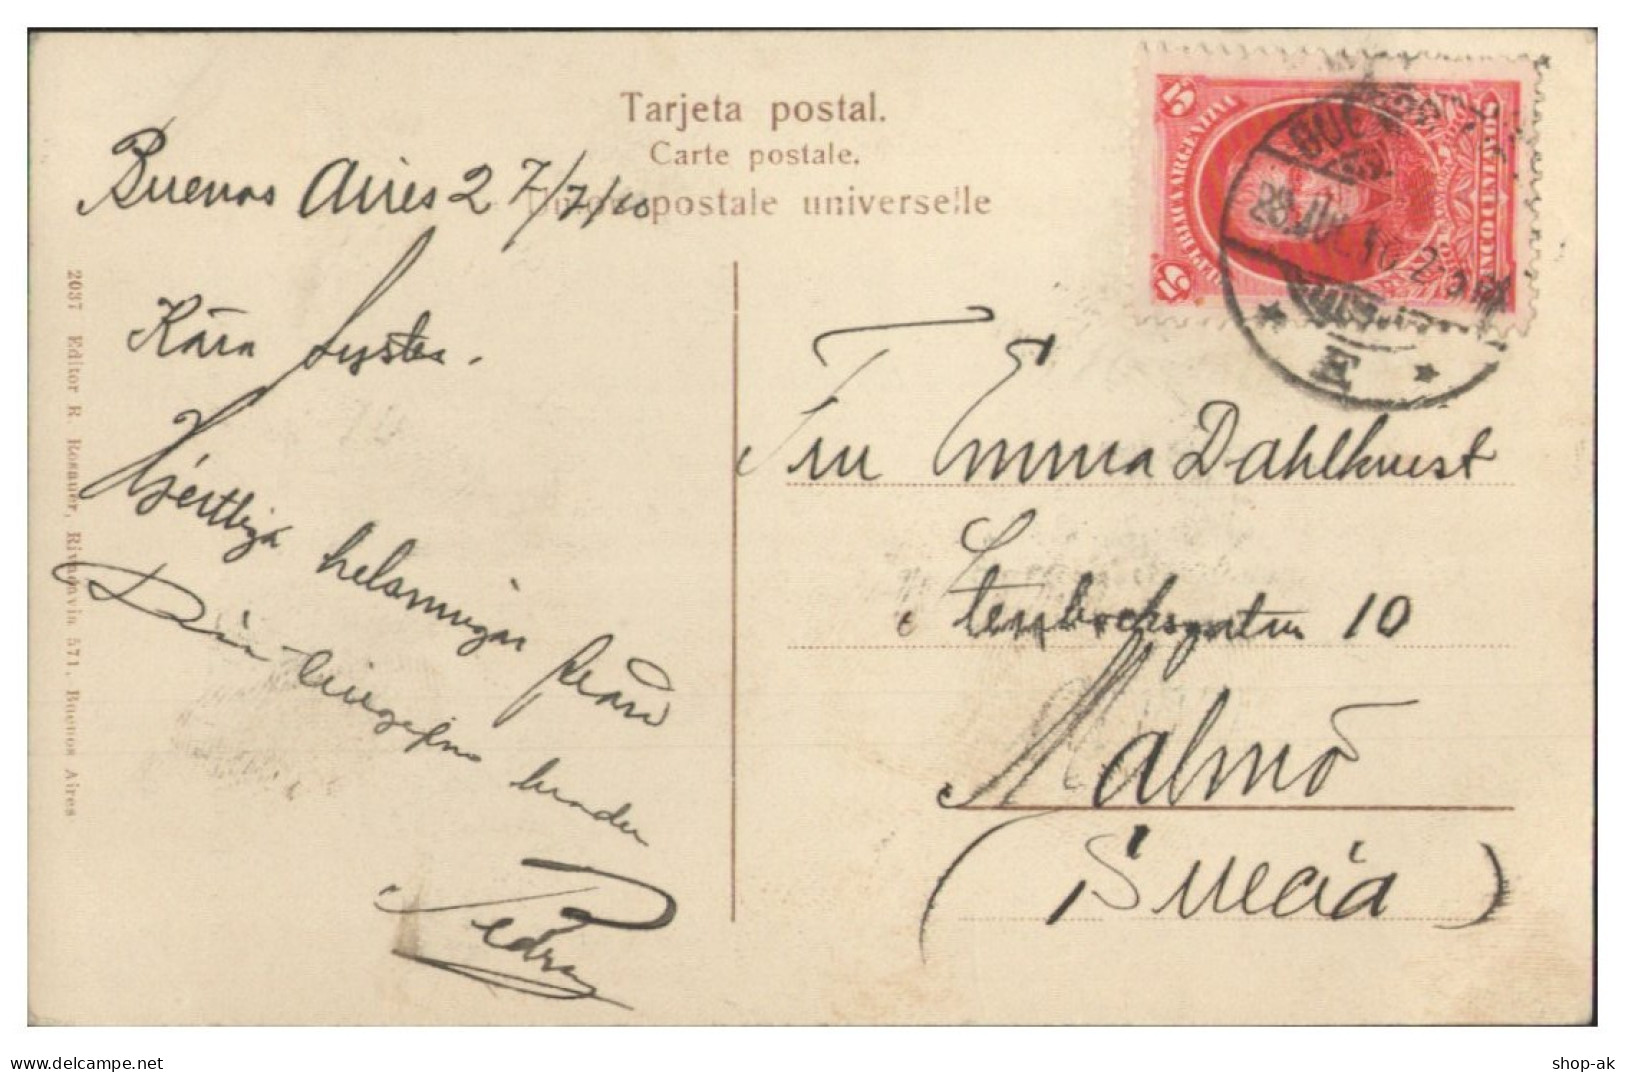 Tarjeta postal.
Carte postale.
Union postale universelle
Buenos Aires 27/7/10
Kära Syster.
Hjertliga helsningar från
Din tillgifna broder
Pedro
Fru Emma Dahlkvist
Stenbocksgatan 10
Malmö
(Suecia)
2037 Editor R. Rosauer, Rivadavia 571, Buenos Aires
15 REPUBLICA ARGENTINA 15
CINCO CENTAVOS
BUENOS
28 JUL 10
E
delcampe.net
shop-ak